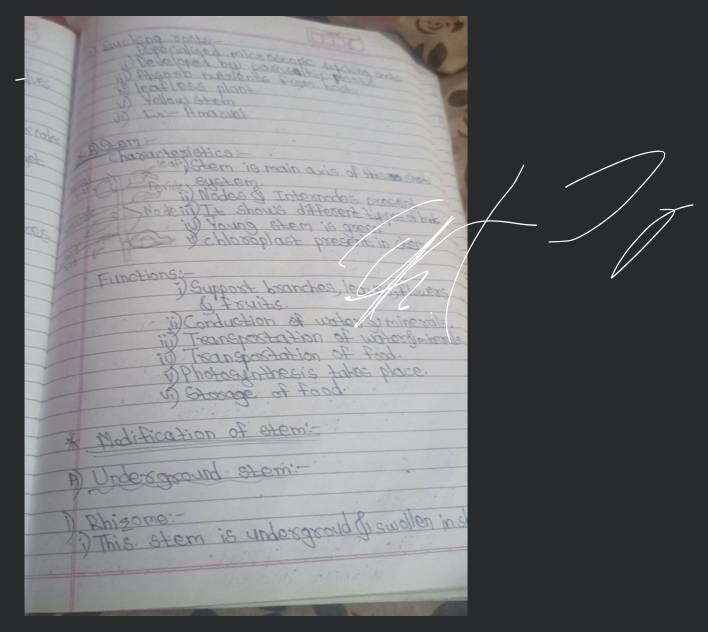 Sucking roots:-
i) Specialized microscopic sucking roots
ii) Developed by parasitic plant
iii) Absorb nutrients from host
iv) leafless plant
v) Yellow stem
vi) Ex:- Amarvel
Stem:-
Characteristics:-
i) Stem is main axis of shoot
system.
ii) Nodes & Internodes present
Node iii) It shows different types of
iv) Young stem is green
v) chloroplast present in stem
Functions:-
i) Support branches, leaves, flowers
& fruits.
ii) Conduction of water & minerals
iii) Transportation of water & minerals
iv) Transportation of food.
v) Photosynthesis takes place.
vi) Storage of food.
* Modification of stem:-
A) Underground stem:-
1) Rhizome:-
i) This stem is undergroud & swollen in